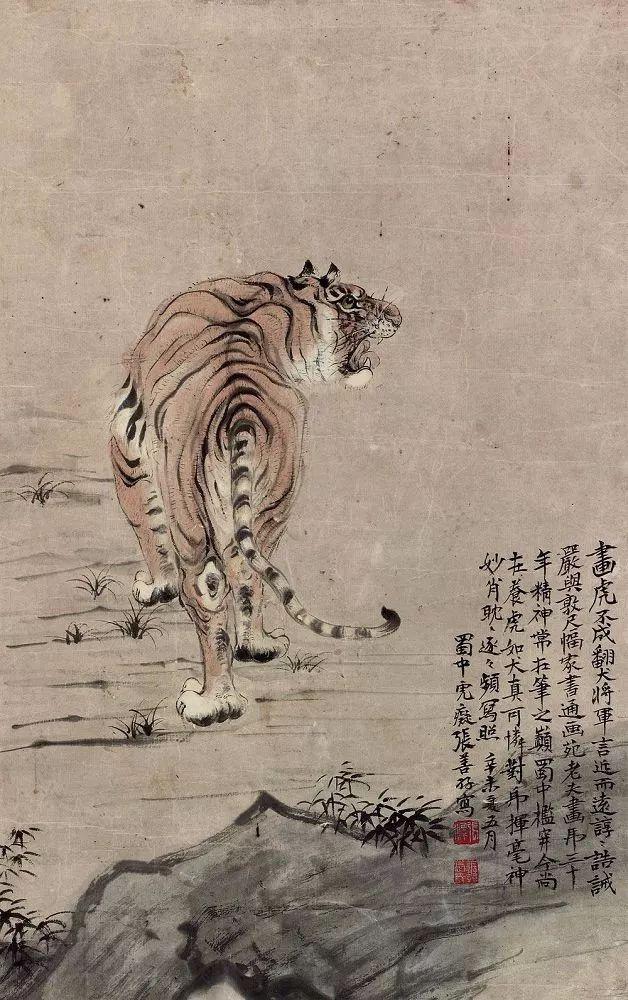 畫虎不成翻犬將軍言近而遠諄〻誥誡
嚴與敦尺幅家書通画苑老夫畫乕三十
年精神常在筆之巔蜀中檻穽今尚
在養虎如犬真可憐對乕揮毫神
妙肖眈〻逐〻頻寫照 辛未夏五月
蜀中虎癡張善孖寫